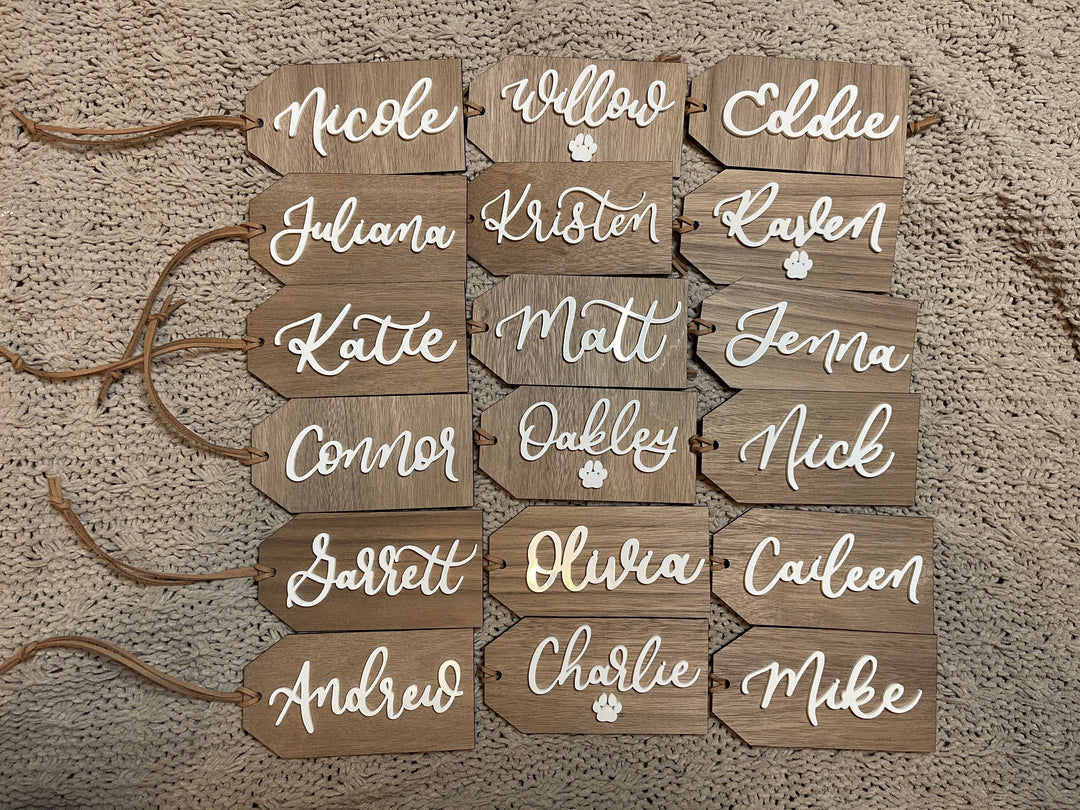 Nicole Willow Eddie
Juliana Kristen Raven
Katie Matt Jenna
Connor Oakley Nick
Garrett Olivia Caileen
Andrew Charlie Mike